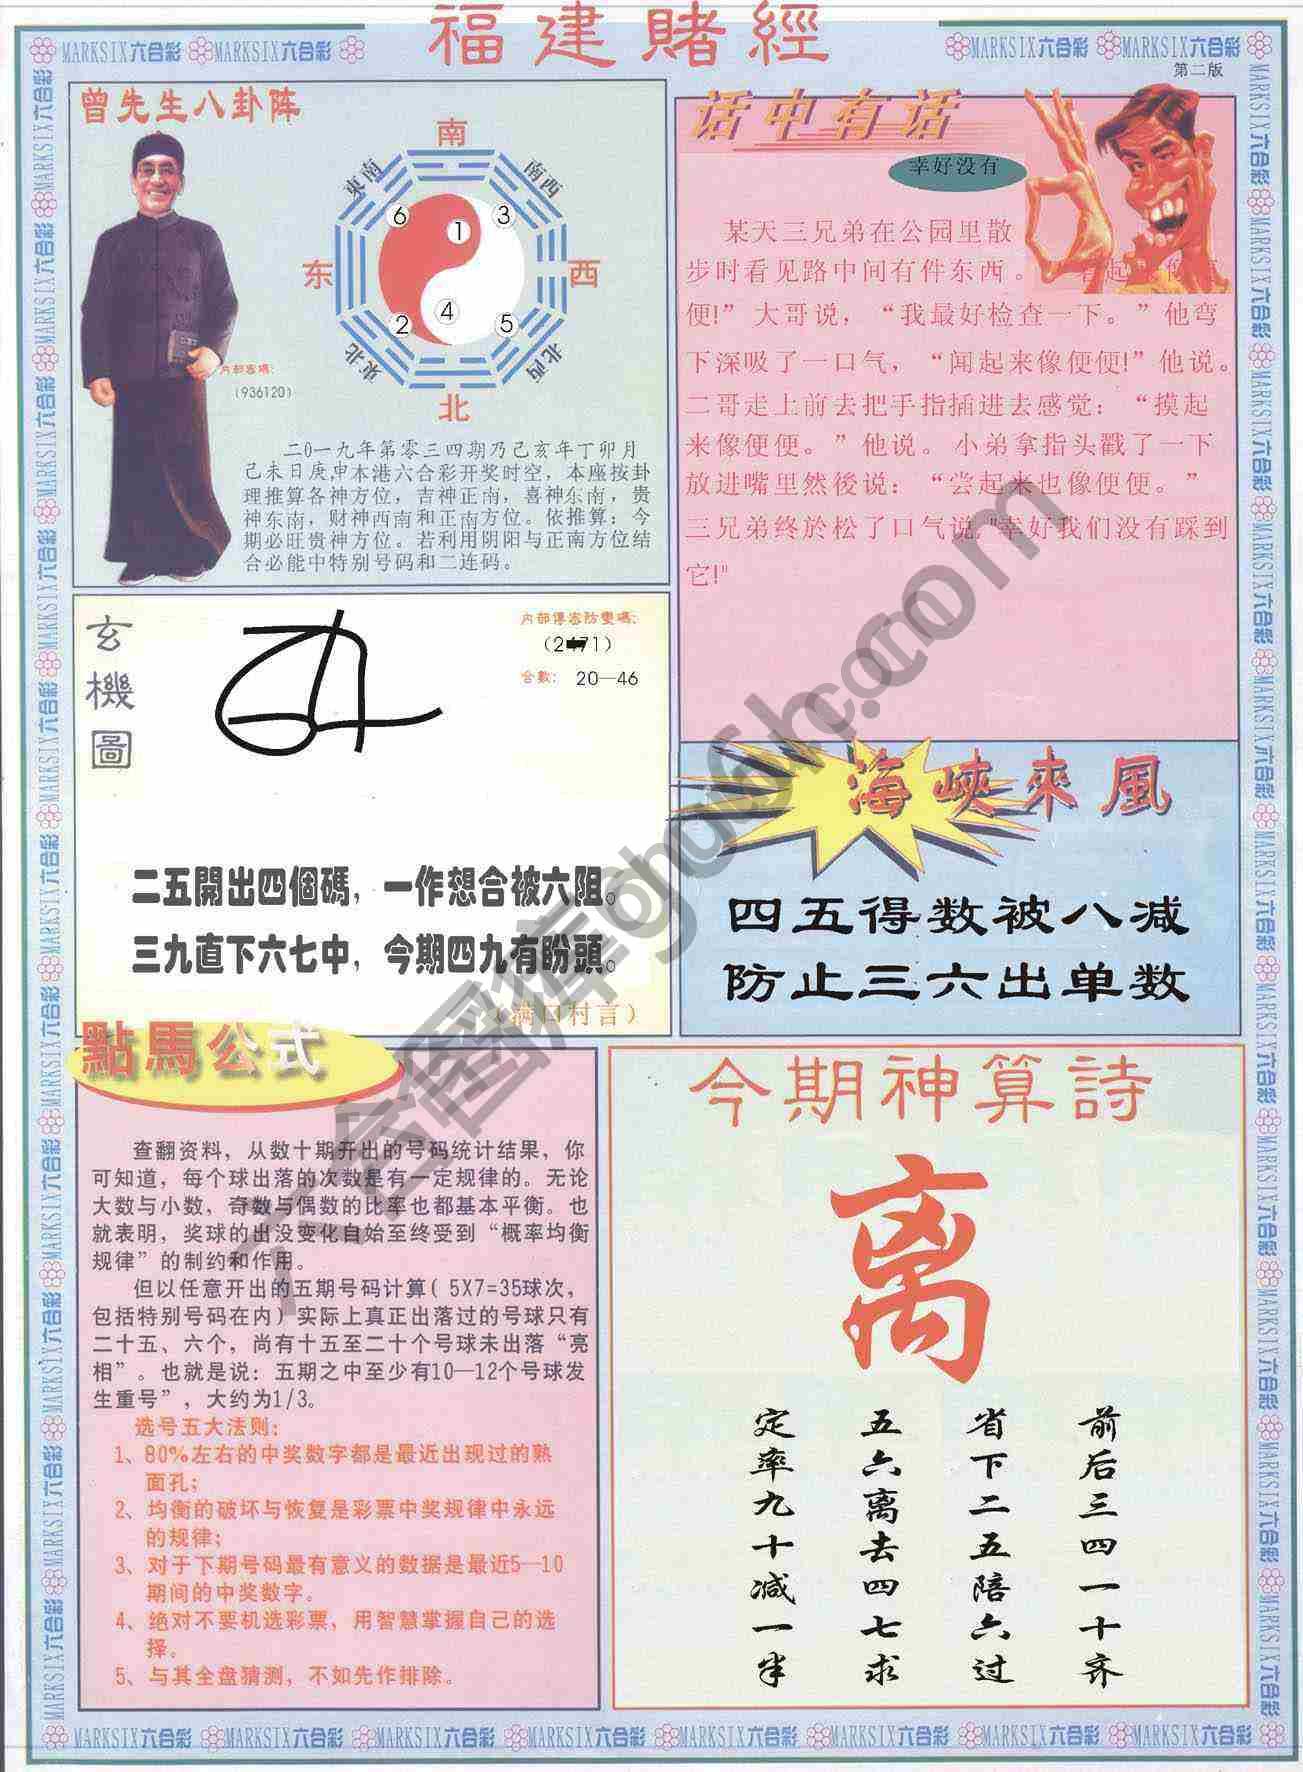 福建賭經
MARKSIX六合彩 MARKSIX六合彩
MARKSIX六合彩 MARKSIX六合彩
第二版
曾先生八卦阵
南
東南
南西
6
1
3
东
西
2
4
5
東北
北西
北
内部密碼:
(936120)
二0一九年第零三四期乃己亥年丁卯月
己未日庚申本港六合彩开奖时空，本座按卦
理推算各神方位，吉神正南，喜神东南，贵
神东南，财神西南和正南方位。依推算：今
期必旺贵神方位。若利用阴阳与正南方位结
合必能中特别号码和二连码。
话中有话
幸好没有
某天三兄弟在公园里散
步时看见路中间有件东西。
便!”大哥说，“我最好检查一下。”他弯
下深吸了一口气，“闻起来像便便!”他说。
二哥走上前去把手指插进去感觉：“摸起
来像便便。”他说。小弟拿指头戳了一下
放进嘴里然後说：“尝起来也像便便。”
三兄弟终於松了口气说，"幸好我们没有踩到
它!"
玄機圖
内部傳密防變碼:
合數: 20—46
二五開出四個碼，一作想合被六阻。
三九直下六七中，今期四九有盼頭。
（满口村言）
海峽來風
四五得数被八减
防止三六出单数
點馬公式
查翻资料，从数十期开出的号码统计结果，你
可知道，每个球出落的次数是有一定规律的。无论
大数与小数，奇数与偶数的比率也都基本平衡。也
就表明，奖球的出没变化自始至终受到“概率均衡
规律”的制约和作用。
但以任意开出的五期号码计算( 5X7=35球次，
包括特别号码在内)实际上真正出落过的号球只有
二十五、六个，尚有十五至二十个号球未出落“亮
相”。也就是说：五期之中至少有10—12个号球发
生重号”，大约为1/3。
选号五大法则：
1、80%左右的中奖数字都是最近出现过的熟
面孔；
2、均衡的破坏与恢复是彩票中奖规律中永远
的规律；
3、对于下期号码最有意义的数据是最近5—10
期间的中奖数字。
4、绝对不要机选彩票，用智慧掌握自己的选
择。
5、与其全盘猜测，不如先作排除。
今期神算詩
离
前后三四一十齐
省下二五陪六过
五六离去四七求
定率九十减一半
MARKSIX六合彩 MARKSIX六合彩 MARKSIX六合彩 MARKSIX六合彩 MARKSIX六合彩 MARKSIX六合彩 MARKSIX六合彩 MARKSIX六合彩